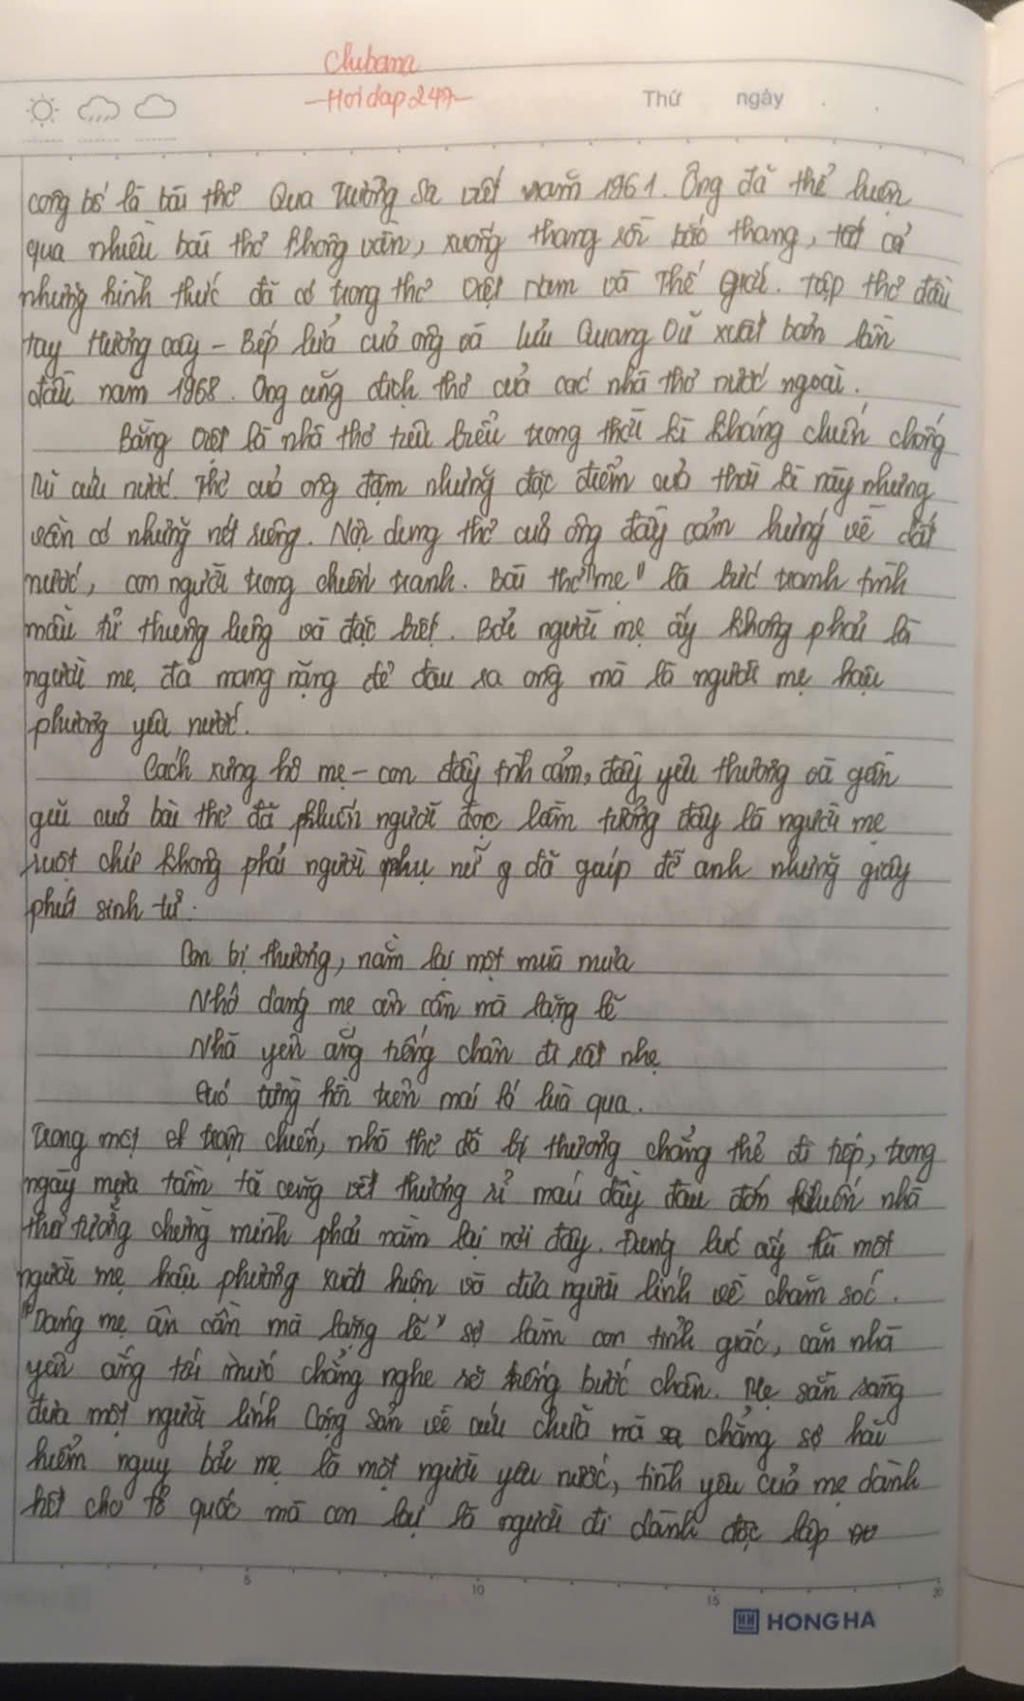 Chubama
-Hoidap247-
Thứ ngày
công bố là bài thơ Qua Trường Sa viết năm 1961. Ông đã thể hiện
qua nhiều bài thơ không vần, xuống thang rồi bão thang, tất cả
những hình thức đã có trong thơ Việt Nam và Thế giới. Tập thơ đầu
tay Hương cây - Bếp lửa của ông và Lưu Quang Vũ xuất bản lần
đầu năm 1968. Ông cũng dịch thơ của các nhà thơ nước ngoài.
Bằng Việt là nhà thơ tiêu biểu trong thời kì kháng chiến chống
Mĩ cứu nước. Thơ của ông đậm những đặc điểm của thời kì này nhưng
vẫn có những nét riêng. Nội dung thơ của ông đầy cảm hứng về đất
nước, con người trong chiến tranh. Bài thơ "mẹ" là bức tranh tình
mẫu tử thiêng liêng và đặc biệt. Bởi người mẹ ấy không phải là
người mẹ đã mang nặng đẻ đau ra ông mà là người mẹ hậu
phương yêu nước.
Cách xưng hô mẹ - con đầy tình cảm, đầy yêu thương và gần
gũi của bài thơ đã khiến người đọc lầm tưởng đây là người mẹ
ruột chứ không phải người phụ nữ đã giúp đỡ anh những giây
phút sinh tử.
Con bị thương, nằm lại một mùa mưa
Nhớ dáng mẹ ân cần mà lặng lẽ
Nhà yên ắng tiếng chân đi rất nhẹ
Gió từng hồi trên mái lá lùa qua.
Trong một trận chiến, nhà thơ đã bị thương chẳng thể đi tiếp, trong
ngày mưa tầm tã cùng vết thương rỉ máu đầy đau đớn khiến nhà
thơ tưởng chừng mình phải nằm lại nơi đây. Đúng lúc ấy thì một
người mẹ hậu phương xuất hiện và đưa người lính về chăm sóc.
"Dáng mẹ ân cần mà lặng lẽ" sợ làm con tỉnh giấc, căn nhà
yên ắng tới mức chẳng nghe rõ tiếng bước chân. Mẹ sẵn sàng
đưa một người lính Cộng sản về cứu chữa mà chẳng sợ hãi
hiểm nguy bởi mẹ là một người yêu nước, tình yêu của mẹ dành
hết cho tổ quốc mà con lại là người đi dành độc lập
5 10 15 20
HH HONG HA